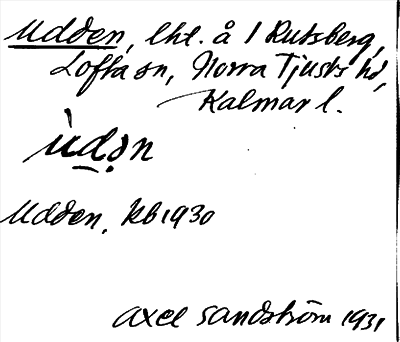 Udden, lht. å 1 Rutsberg,
Lofta sn, Norra Tjusts hd,
Kalmar l.
ùdən
Udden, kb 1930
Axel Sandström 1931